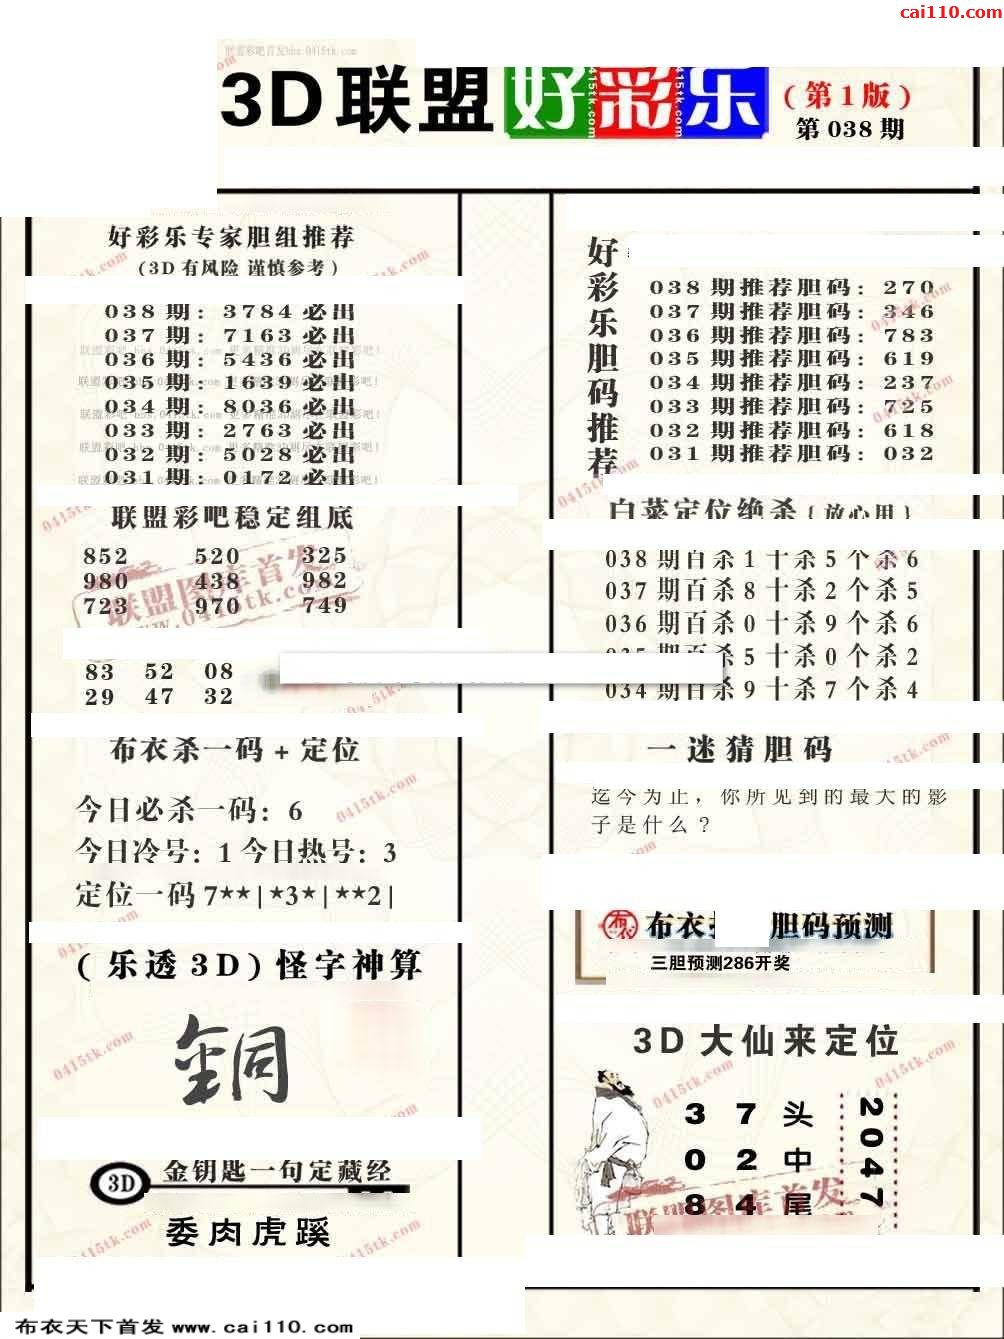 cai110.com
3D联盟好彩乐
(第1版)
第038期
好彩乐专家胆组推荐
(3D有风险 谨慎参考)
038期: 3784必出
037期: 7163必出
036期: 5436必出
035期: 1639必出
034期: 8036必出
033期: 2763必出
032期: 5028必出
031期: 0172必出
联盟彩吧稳定组底
852 520 325
980 438 982
723 970 749
83 52 08
29 47 32
布衣杀一码+定位
今日必杀一码: 6
今日冷号: 1 今日热号: 3
定位一码 7**|*3*|**2|
(乐透3D)怪字神算
銅
3D 金钥匙一句定藏经
委肉虎蹊
好彩乐胆码推荐
038期推荐胆码: 270
037期推荐胆码: 346
036期推荐胆码: 783
035期推荐胆码: 619
034期推荐胆码: 237
033期推荐胆码: 725
032期推荐胆码: 618
031期推荐胆码: 032
白菜定位绝杀{放心用}
038期百杀1十杀5个杀6
037期百杀8十杀2个杀5
036期百杀0十杀9个杀6
035期百杀5十杀0个杀2
034期百杀9十杀7个杀4
一迷猜胆码
迄今为止，你所见到的最大的影
子是什么?
布衣 布衣 胆码预测
三胆预测286开奖
3D大仙来定位
37头
02中
84尾
2047
联盟图库首发
0415tk.com
布衣天下首发 www.cai110.com